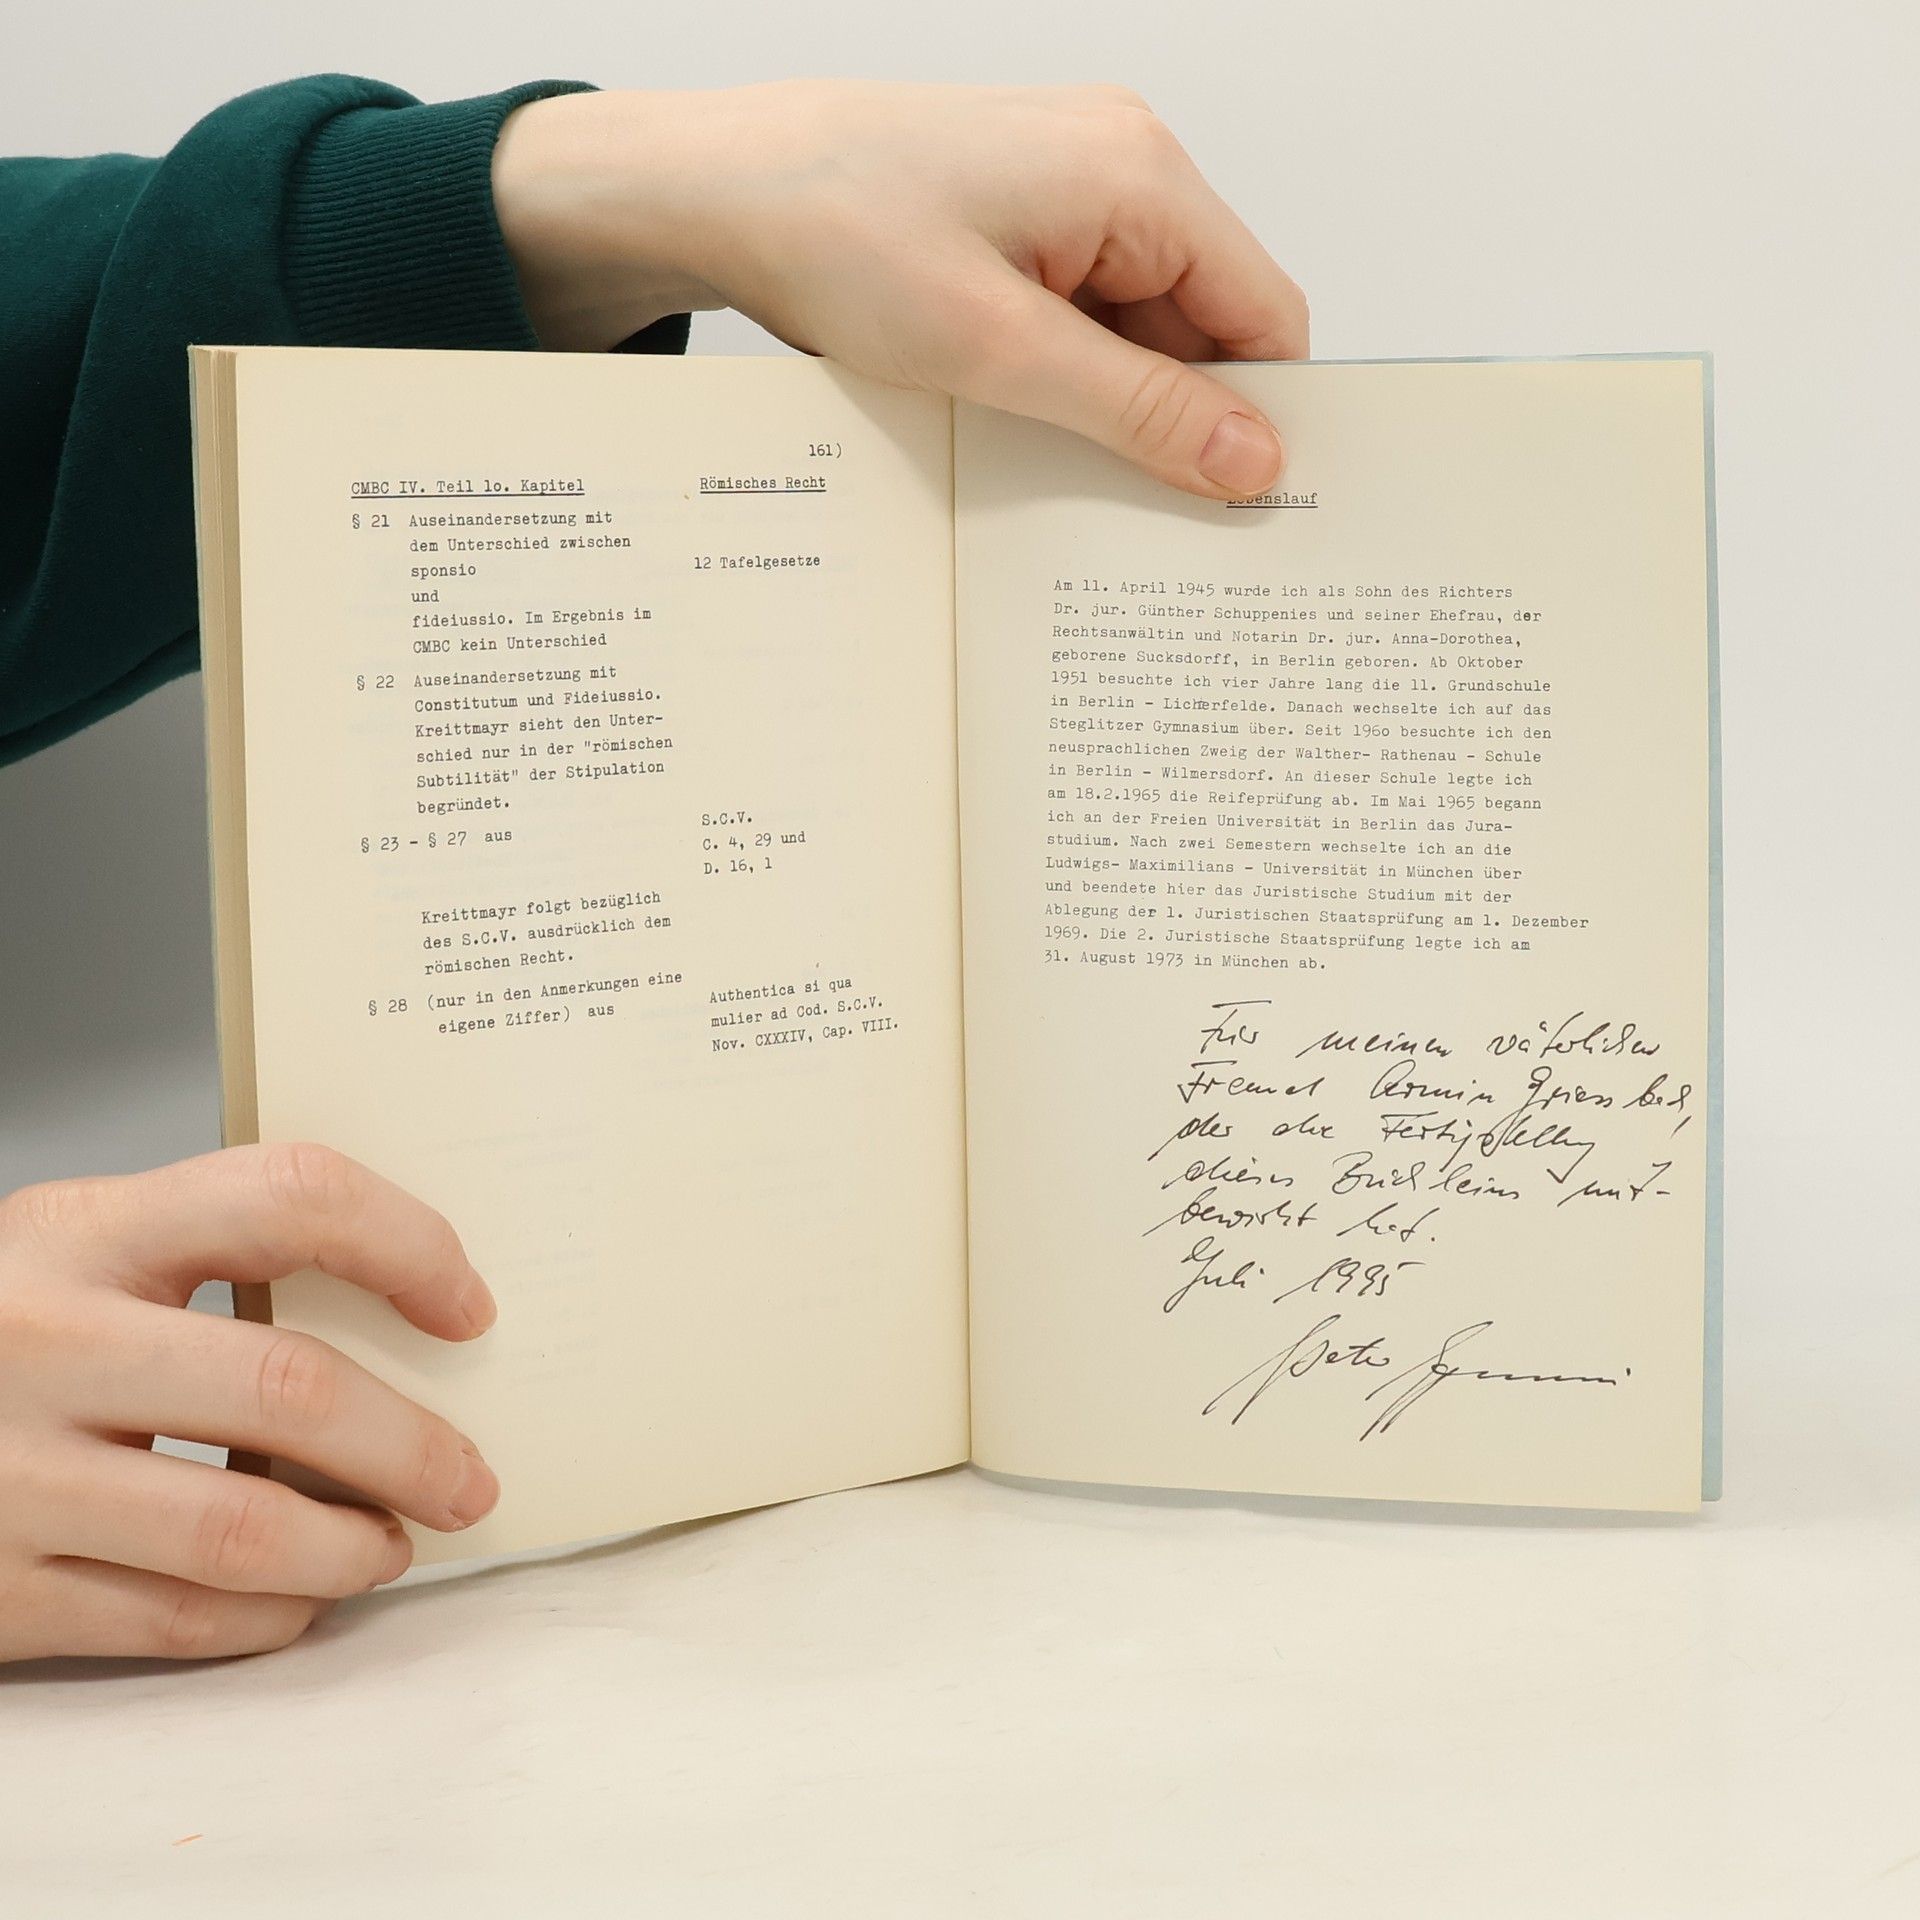 161)
CMBC IV. Teil lo. Kapitel
Römisches Recht
§ 21 Auseinandersetzung mit
dem Unterschied zwischen
sponsio
12 Tafelgesetze
und
fideiussio. Im Ergebnis im
CMBC kein Unterschied
§ 22 Auseinandersetzung mit
Constitutum und Fideiussio.
Kreittmayr sieht den Unter-
schied nur in der "römischen
Subtilität" der Stipulation
begründet.
§ 23 - § 27 aus
S.C.V.
C. 4, 29 und
D. 16, 1
Kreittmayr folgt bezüglich
des S.C.V. ausdrücklich dem
römischen Recht.
§ 28 (nur in den Anmerkungen eine
eigene Ziffer) aus
Authentica si qua
mulier ad Cod. S.C.V.
Nov. CXXXIV, Cap. VIII.
Lebenslauf
Am 11. April 1945 wurde ich als Sohn des Richters
Dr. jur. Günther Schuppenies und seiner Ehefrau, der
Rechtsanwältin und Notarin Dr. jur. Anna-Dorothea,
geborene Sucksdorff, in Berlin geboren. Ab Oktober
1951 besuchte ich vier Jahre lang die 11. Grundschule
in Berlin - Lichterfelde. Danach wechselte ich auf das
Steglitzer Gymnasium über. Seit 196o besuchte ich den
neusprachlichen Zweig der Walther- Rathenau - Schule
in Berlin - Wilmersdorf. An dieser Schule legte ich
am 18.2.1965 die Reifeprüfung ab. Im Mai 1965 begann
ich an der Freien Universität in Berlin das Jura-
studium. Nach zwei Semestern wechselte ich an die
Ludwigs- Maximilians - Universität in München über
und beendete hier das Juristische Studium mit der
Ablegung der 1. Juristischen Staatsprüfung am 1. Dezember
1969. Die 2. Juristische Staatsprüfung legte ich am
31. August 1973 in München ab.
Für meinen väterlichen
Freund Armin
der die Fertigstellung
dieses Büchleins mit-
bewirkt hat.
Juli 1995
Peter